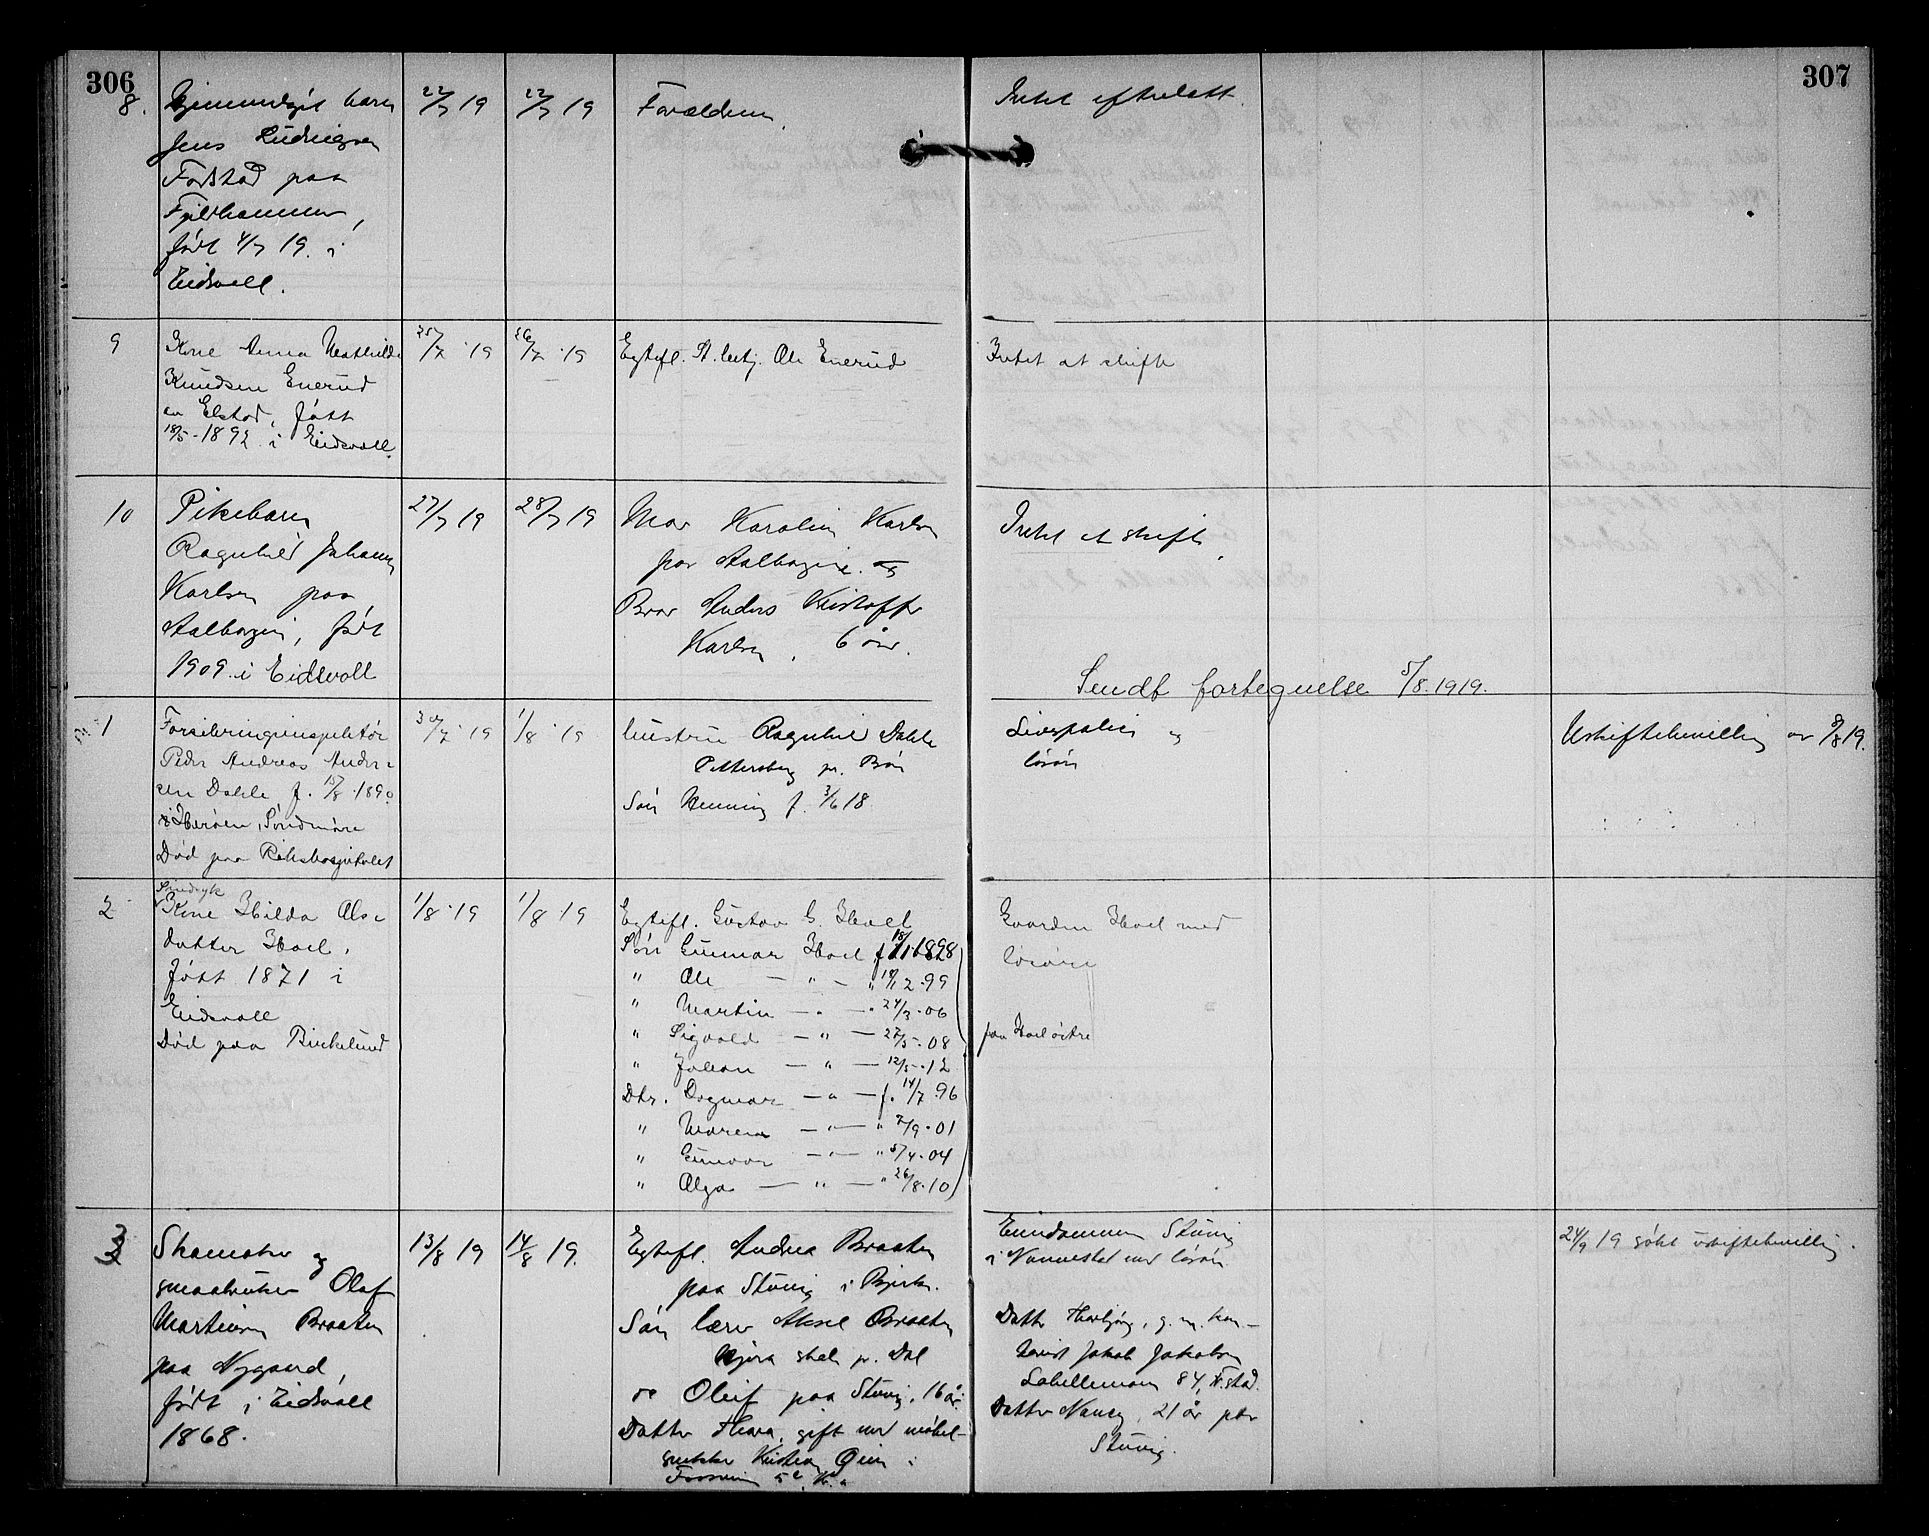 306
307
8.
barn
Jens Ludvigsen
Forstad paa
Fjeldhammer,
født 4/7 19. i
Eidsvoll.
22/7 19
22/7 19
Forældrene.
Intet efterlatt.
9
Kone Anna Mathilde
Knudsen Enerud
av Elstad, født
18/5-1892 i Eidsvoll.
25/7 19
26/7 19
Egtefl. St. betj. Ole Enerud
Intet at skifte
10
Pikebarn
Ragnhild Johanne
Karlsen paa
født
1909 i Eidsvoll
27/7 19
28/7 19
Mor Karoline Karlsen
paa og
Bror Anders Kristoffer
Karlsen, 6 år.
Intet at skifte.
Sendt fortegnelse 5/8.1919.
1
Forsikringsinspektør
Peder Andreas Ander-
sen Dahle f. 15/8 1890
i Herøen, Søndmøre
Død paa Rikshospitalet
30/7 19
1/8 19
Hustru Ragnhild Dahle
Pettersberg pr. Bøn
Søn Henning f. 3/6 18
Livspolice og
løsøre
Uskiftebevilling av 9/8 19.
2
Sindsyk
Kone Hilda Ols-
datter Hoel,
født 1871 i
Eidsvoll
Død paa Birkelund
1/8 19
1/8 19
Egtefl. Gustav G. Hoel
Søn Gunnar Hoel f 18/1 1898
" Ole — " — " 2.99
" Martin — " — " 24/3.06
" Sigvald — " — 27/5.08
" Johan — " — 12/5.12
Dtr. Dagmar — " — f. 14/7.96
" Maren — " — " 7/9.01
" Gunvor — " — " 5/4.04
" Olga — " — " 26/8.10
Gaarden Hoel med
løsøre
paa Hoel østre
3
Skomaker og
smaabruker Olaf
Martinsen Braaten
paa Nygaard
født i Eidsvoll
1868.
13/8 19
14/8 19.
Egtefl. Andrea Braaten
paa Stuvig i Bjerke.
Søn lærer Aksel Braaten
skole pr. Dal
og Oleif paa Stuvig, 16 år.
Datter Thora, gift med møbel-
snekker Kristian i
Eiendommen Stuvig
i Nannestad med løsøre
Datter Herbjørg, g. m. kon-
torist Jakob Jakobsen
84, F.stad.
Datter Nancy, 21 år paa
Stuvig.
24/9 19 søkt uskiftebevilling.